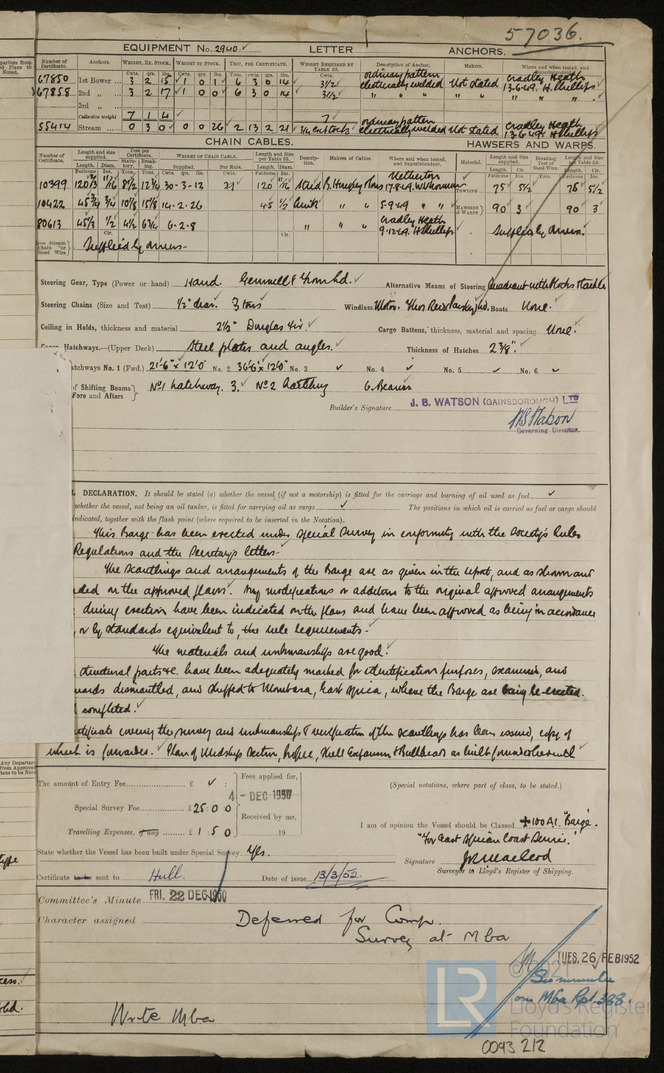 57036.
EQUIPMENT No. 2940. LETTER ANCHORS.
Number of Certificate. Anchors. WEIGHT, EX. STOCK. WEIGHT OF STOCK. TEST, PER CERTIFICATE. WEIGHT REQUIRED BY TABLE 53. Description of Anchor. Makers. Where and when tested, and
67850 1st Bower 3 2 15 1 0 1 6 3 0 14 3½ ordinary pattern electrically welded Not Stated Cradley Heath 13.6.49. H. Phillips
67858 2nd „ 3 2 17 1 0 0 6 3 0 14 3½ „ „ „ „ „ „
3rd „
Collective weight 7 1 4 7
55414 Stream 0 3 0 0 0 26 2 13 2 21 ordinary pattern electrically welded Not Stated Cradley Heath 13.6.49. H. Phillips
CHAIN CABLES. HAWSERS AND WARPS.
Number of Certificate. Length and size supplied. Test per Certificate. WEIGHT OF CHAIN CABLE. Length and size per Table 53. Description. Makers of Cables. Where and when tested, and Superintendent. Material. Length and Size supplied. Breaking Test of Steel Wire. Length and Size per Table 53.
10399 120 11/16 8½ 30-3-12 120 11/16 Stud Netherton 17.8.49. TOWLINE 75 5½ 75 5½
10422 45¾ ¾ 10⅛ 15⅛ 14-2-26 45 ½ 5.9.49 „ „ HAWSERS & WARPS 90 3 90 3
80613 45⅓ ½ 6-2-8 „ „ Cradley Heath 9.12.49. H. Phillips Supplied by owners.
Iron Stream Chain or Steel Wire Supplied by owners
Steering Gear, Type (Power or hand) Hand Alternative Means of Steering Quadrant with blocks & tackle
Steering Chains (Size and Test) ½" diar. 3 tons Windlass Boats None.
Ceiling in Holds, thickness and material 2½" Douglas Fir. Cargo Battens, thickness, material and spacing None.
Hatchways.—(Upper Deck) Steel plates and angles. Thickness of Hatches 2⅜".
Hatchways No. 1 (Fwd.) 21'-6" x 12'0" No. 2 36'6" x 12'0" No. 3 No. 4 No. 5 No. 6
of Shifting Beams Fore and Afters No1 hatchway. 3. No2 hatchway 6 Beams
Builder's Signature J. B. WATSON (GAINSBOROUGH) LTD
Governing Director.
DECLARATION. It should be stated (a) whether the vessel (if not a motorship) is fitted for the carriage and burning of oil used as fuel
whether the vessel, not being an oil tanker, is fitted for carrying oil as cargo The positions in which oil is carried as fuel or cargo should
indicated, together with the flash point (where required to be inserted in the Notation).
This Barge has been erected under Special Survey in conformity with the Society's Rules
Regulations and the Secretary's letters.
The Scantlings and arrangements of the Barge are as given in the report, and as shown and
on the approved plans. Any modifications or additions to the original approved arrangements
during erection have been indicated on the plans and have been approved as being in accordance
or by standards equivalent to the rule requirements.
The materials and workmanship are good.
structural parts &c. have been adequately marked for identification purposes, examined, and
dismantled, and shipped to Mombasa, East Africa, where the Barge are being re-erected.
completed.
covering the survey and workmanship & verification of the scantlings has been issued, copy of
which is forwarded. Plan of Midship Section, Profile, Shell Expansion & Bulkheads as built forwarded herewith
The amount of Entry Fee £
Special Survey Fee £25 0 0
Travelling Expenses, if any £ 1 5 0
Fees applied for,
4 - DEC 1950
Received by me,
19
(Special notations, where part of class, to be stated.)
I am of opinion the Vessel should be Classed +100A1. "Barge".
"For East African Coast Service."
State whether the Vessel has been built under Special Survey Yes.
Signature
Surveyor to Lloyd's Register of Shipping.
Certificate sent to Hull. Date of issue 13/3/52.
Committee's Minute FRI. 22 DEC 1950
Character assigned Deferred for Comp.
Survey at Mba
TUES. 26 FEB 1952
See minute
on Mba Rpt. 388.
Write Mba
© 2021
LR
Lloyd's Register
Foundation
0093 212